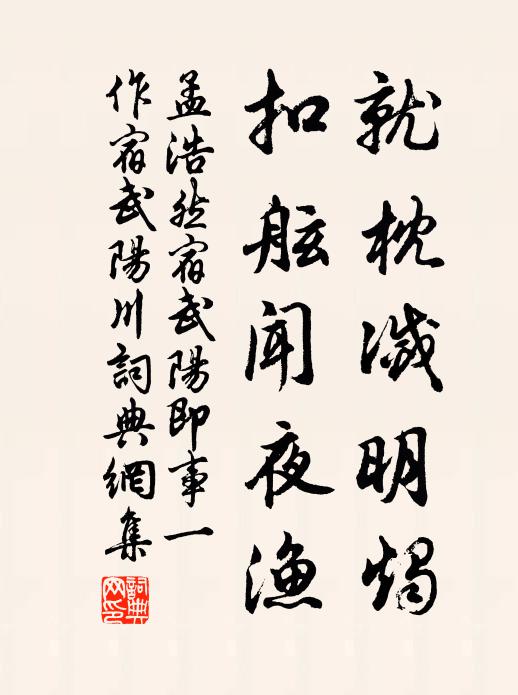 就枕滅明燭
扣舷聞夜漁
孟浩然宿武陽即事一
作宿武陽川詞典網集
詞典
网印